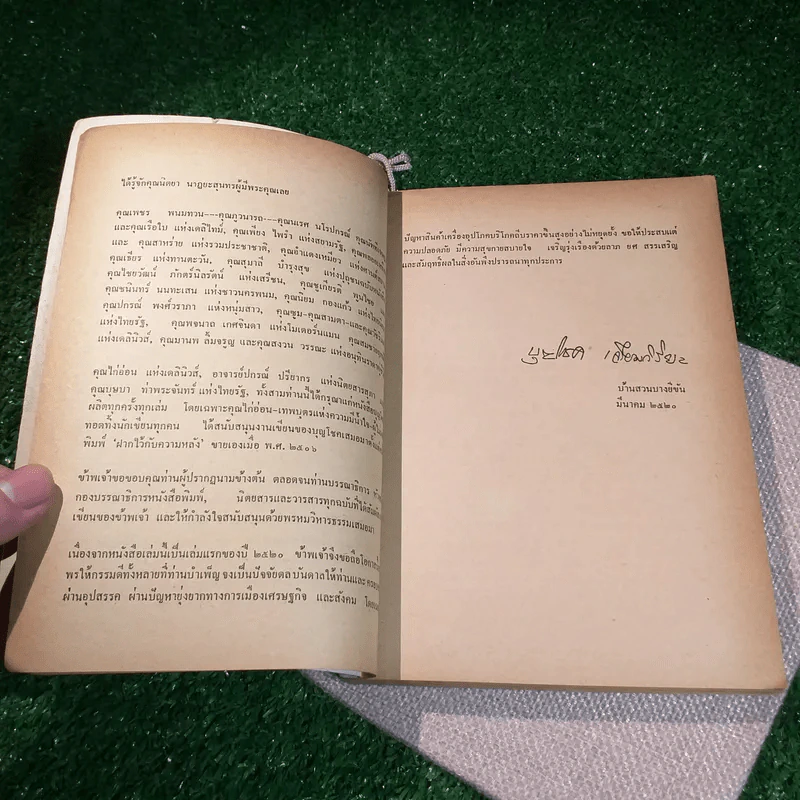 ได้รู้จักคุณนิตยา นาฏยะสุนทรผู้มีพระคุณเลย
คุณเพชร พนมทวน---คุณภูวนารถ---คุณนเรศ นโรปกรณ์
และคุณเรือใบ แห่งเดลิไทม์, คุณเพียง ไพรำ แห่งสยามรัฐ,
และ คุณสาหร่าย แห่งรวมประชาชาติ, คุณอำแดงเหมียว
คุณเธียร แห่งทานตะวัน, คุณสุมาลี บำรุงสุข
คุณไชยวัฒน์ ภักตร์นิลรัตน์ แห่งเสรีชน, คุณชูเกียรติ
คุณชนินทร์ นนทะเสน แห่งชาวนครพนม, คุณนิยม กองแก้ว
คุณปกรณ์ พงศ์วราภา แห่งหนุ่มสาว, คุณซูม-คุณสามตา-และ
แห่งไทยรัฐ, คุณพจนาถ เกศจินดา แห่งโมเดอร์นแมน
แห่งเดลินิวส์, คุณมานพ ลิ้มจรูญ และคุณสงวน วรรณะ
คุณไก่อ่อน แห่งเดลินิวส์, อาจารย์ปกรณ์ ปรียากร แห่งนิตยสาร
คุณบุษบา ท่าพระจันทร์ แห่งไทยรัฐ, ทั้งสามท่านนี้ได้กรุณาแก่หนังสือ
ผลิตทุกครั้งทุกเล่ม โดยเฉพาะคุณไก่อ่อน-เทพบุตรแห่งความมีน้ำใจ
ทอดทิ้งนักเขียนทุกคน ได้สนับสนุนงานเขียนของบุญโชคเสมอมา
พิมพ์ 'ฝากไว้กับความหลัง' ขายเองเมื่อ พ.ศ. ๒๕๐๖
ข้าพเจ้าขอขอบคุณท่านผู้ปรากฏนามข้างต้น ตลอดจนท่านบรรณาธิการ
กองบรรณาธิการหนังสือพิมพ์, นิตยสารและวารสารทุกฉบับที่ได้
เขียนของข้าพเจ้า และให้กำลังใจสนับสนุนด้วยพรหมวิหารธรรมเสมอมา
เนื่องจากหนังสือเล่มนี้เป็นเล่มแรกของปี ๒๕๒๐ ข้าพเจ้าจึงขอถือโอกาส
พรให้กรรมดีทั้งหลายที่ท่านบำเพ็ญ จงเป็นปัจจัยดลบันดาลให้ท่านและ
ผ่านอุปสรรค ผ่านปัญหายุ่งยากทางการเมืองเศรษฐกิจ และสังคม
ปัญหาสินค้าเครื่องอุปโภคบริโภคถีบราคาขึ้นสูงอย่างไม่หยุดยั้ง ขอให้ประสบแต่
ความปลอดภัย มีความสุขกายสบายใจ เจริญรุ่งเรืองด้วยลาภ ยศ สรรเสริญ
และสัมฤทธิ์ผลในสิ่งอันพึงปรารถนาทุกประการ
บุญโชค เจียมวิริยะ
บ้านสวนบางยี่ขัน
มีนาคม ๒๕๒๐